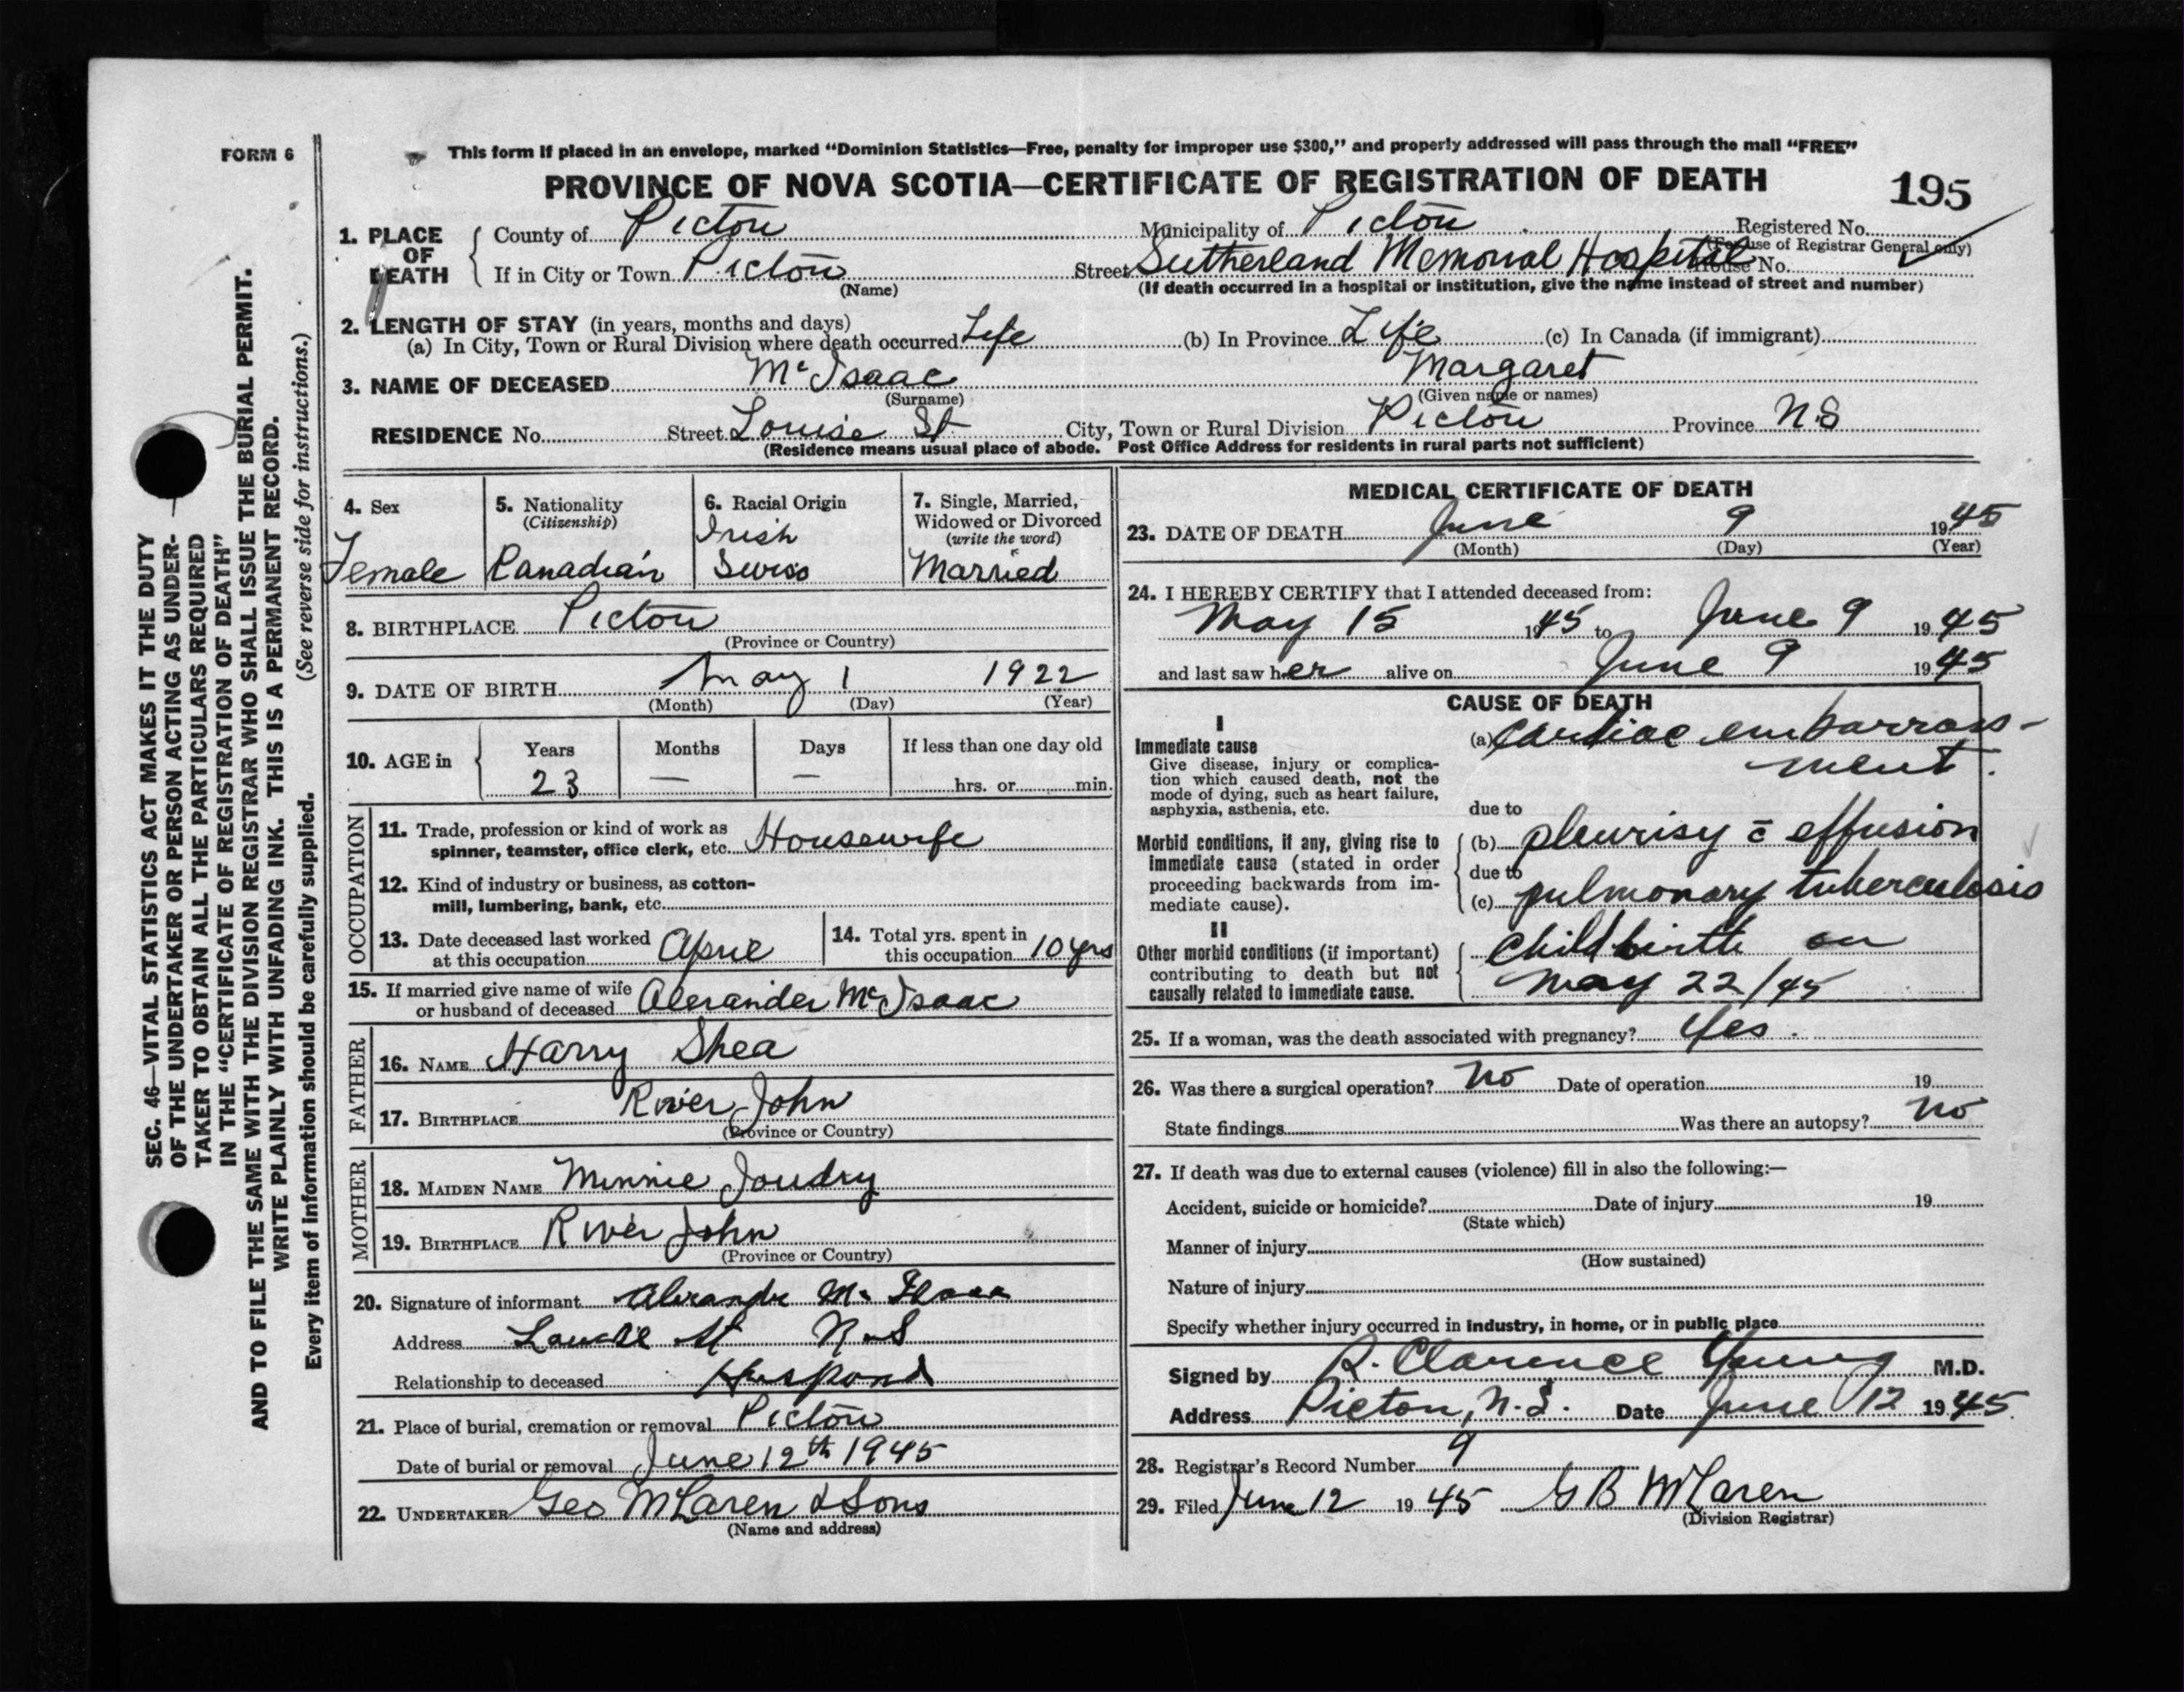 FORM 6
This form if placed in an envelope, marked "Dominion Statistics—Free, penalty for improper use $300," and properly addressed will pass through the mail "FREE"
PROVINCE OF NOVA SCOTIA—CERTIFICATE OF REGISTRATION OF DEATH
195
1. PLACE OF DEATH
County of Pictou Municipality of Pictou Registered No.
(For use of Registrar General only)
If in City or Town Pictou Street Sutherland Memorial Hospital House No.
(Name) (If death occurred in a hospital or institution, give the name instead of street and number)
2. LENGTH OF STAY (in years, months and days)
(a) In City, Town or Rural Division where death occurred Life (b) In Province Life (c) In Canada (if immigrant)
3. NAME OF DECEASED McIsaac Margaret
(Surname) (Given name or names)
RESIDENCE No. Street Louise St City, Town or Rural Division Pictou Province N.S
(Residence means usual place of abode. Post Office Address for residents in rural parts not sufficient)
4. Sex
Female
5. Nationality
(Citizenship)
Canadian
6. Racial Origin
Irish
Swiss
7. Single, Married,
Widowed or Divorced
(write the word)
Married
8. BIRTHPLACE Pictou
(Province or Country)
9. DATE OF BIRTH May 1 1922
(Month) (Day) (Year)
10. AGE in
Years Months Days If less than one day old
23 — — hrs. or min.
OCCUPATION
11. Trade, profession or kind of work as
spinner, teamster, office clerk, etc. Housewife
12. Kind of industry or business, as cotton-
mill, lumbering, bank, etc.
13. Date deceased last worked
at this occupation April
14. Total yrs. spent in
this occupation 10 yrs
15. If married give name of wife
or husband of deceased Alexander McIsaac
FATHER
16. NAME Harry Shea
17. BIRTHPLACE River John
(Province or Country)
MOTHER
18. MAIDEN NAME Minnie Joudry
19. BIRTHPLACE River John
(Province or Country)
20. Signature of informant
Address St N S
Relationship to deceased Huspond
21. Place of burial, cremation or removal Pictou
Date of burial or removal June 12th 1945
22. UNDERTAKER Geo McLaren & Sons
(Name and address)
MEDICAL CERTIFICATE OF DEATH
23. DATE OF DEATH June 9 1945
(Month) (Day) (Year)
24. I HEREBY CERTIFY that I attended deceased from:
May 15 1945 to June 9 1945
and last saw her alive on June 9 1945
CAUSE OF DEATH
I
Immediate cause
Give disease, injury or complica-
tion which caused death, not the
mode of dying, such as heart failure,
asphyxia, asthenia, etc.
(a) Cardiac embarrass-
ment.
due to
Morbid conditions, if any, giving rise to
immediate cause (stated in order
proceeding backwards from im-
mediate cause).
(b) pleurisy c̄ effusion
due to
(c) pulmonary tuberculosis
II
Other morbid conditions (if important)
contributing to death but not
causally related to immediate cause.
Childbirth on
May 22/45
25. If a woman, was the death associated with pregnancy? Yes.
26. Was there a surgical operation? No Date of operation 19
State findings Was there an autopsy? No
27. If death was due to external causes (violence) fill in also the following:—
Accident, suicide or homicide? Date of injury 19
(State which)
Manner of injury
(How sustained)
Nature of injury
Specify whether injury occurred in industry, in home, or in public place
Signed by R. Clarence Young M.D.
Address Pictou, N.S. Date June 12 1945.
28. Registrar's Record Number 9
29. Filed June 12 1945 G B McLaren
(Division Registrar)
SEC. 46—VITAL STATISTICS ACT MAKES IT THE DUTY
OF THE UNDERTAKER OR PERSON ACTING AS UNDER-
TAKER TO OBTAIN ALL THE PARTICULARS REQUIRED
IN THE "CERTIFICATE OF REGISTRATION OF DEATH"
AND TO FILE THE SAME WITH THE DIVISION REGISTRAR WHO SHALL ISSUE THE BURIAL PERMIT.
WRITE PLAINLY WITH UNFADING INK. THIS IS A PERMANENT RECORD.
Every item of information should be carefully supplied. (See reverse side for instructions.)